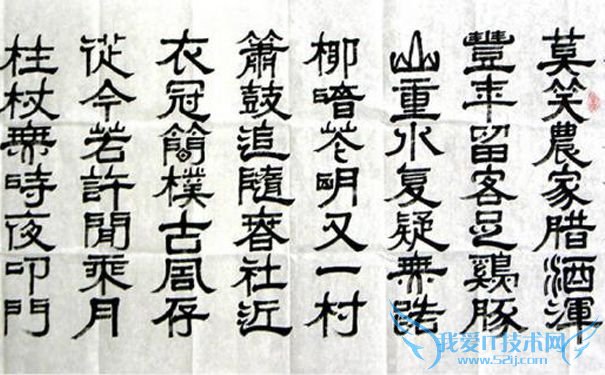 莫笑農家腊酒渾
豐年留客足鷄豚
山重水复疑無路
柳暗花明又一村
簫鼓追隨春社近
衣冠簡樸古風存
從今若許閒乘月
柱杖無時夜叩門
我爱IT技术网
www.52ij.com